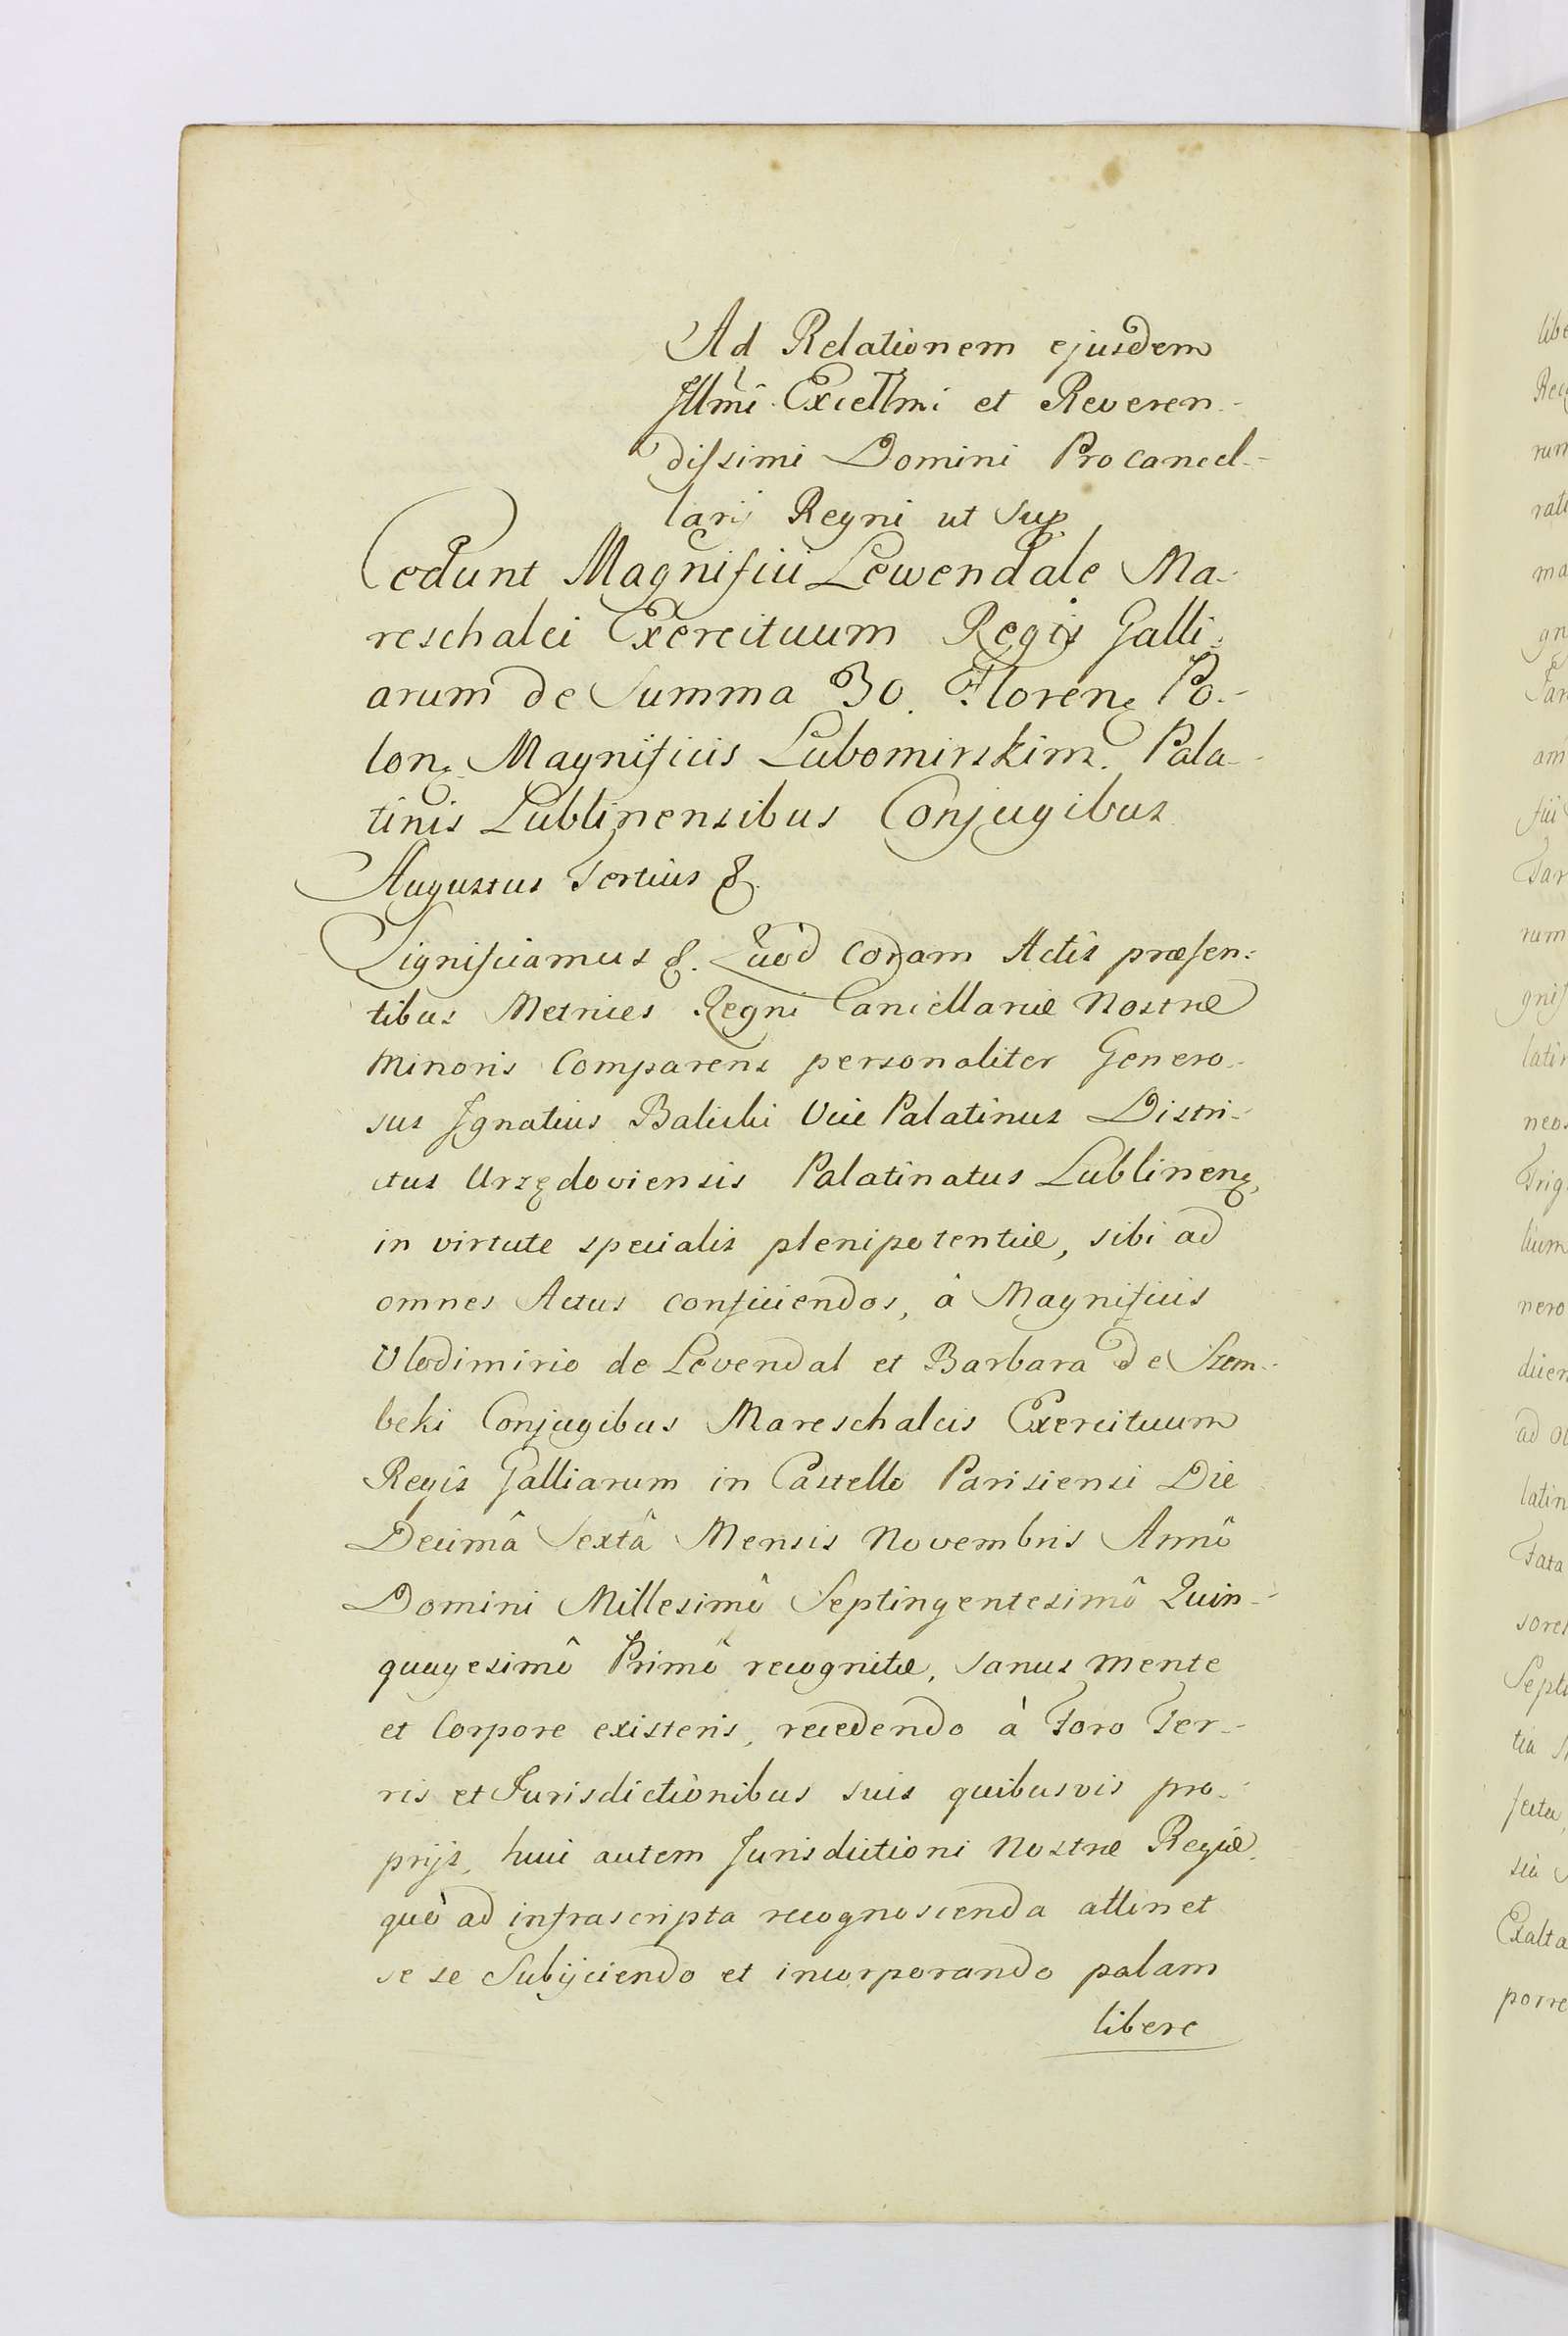 Ad Relationem ejusdem
Jllmi Excellmi et Reveren-
dissimi Domini Procancel-
larij Regni ut Sup
Cedunt Magnifici Lewendale Ma-
reschalci Exercituum Regis Galli-
arum de Summa 30. Floren. Po-
lon. Magnificis Lubomirskim. Pala-
tinis Lublinensibus Conjugibus
Augustus Tertius &.
Significamus &. Quòd coram Actis præsen-
tibus Metrices Regni Cancellariæ Nostræ
Minoris Comparens personaliter Genero-
sus Jgnatius Balicki Vice Palatinus Distri-
ctus Urzędoviensis Palatinatus Lublinen.,
in virtute specialis plenipotentiæ, sibi ad
omnes Actus conficiendos, à Magnificis
Vlodimirio de Levendal et Barbara de Szem-
beki Conjugibus Mareschalcis Exercituum
Regis Galliarum in Castello Parisiensi Die
Decimâ Sextâ Mensis Novembris Annô
Domini Millesimô Septingentesimô Quin-
quagesimô Primô recognitæ, sanus mente
et Corpore existens, recedendo à Foro Ter-
ris et Jurisdictionibus suis quibusvis pro-
prijs, huic autem Jurisdictioni Nostræ Regiæ
quò ad infrascripta recognoscenda attinet
se se Subijciendo et incorporando palam
libere